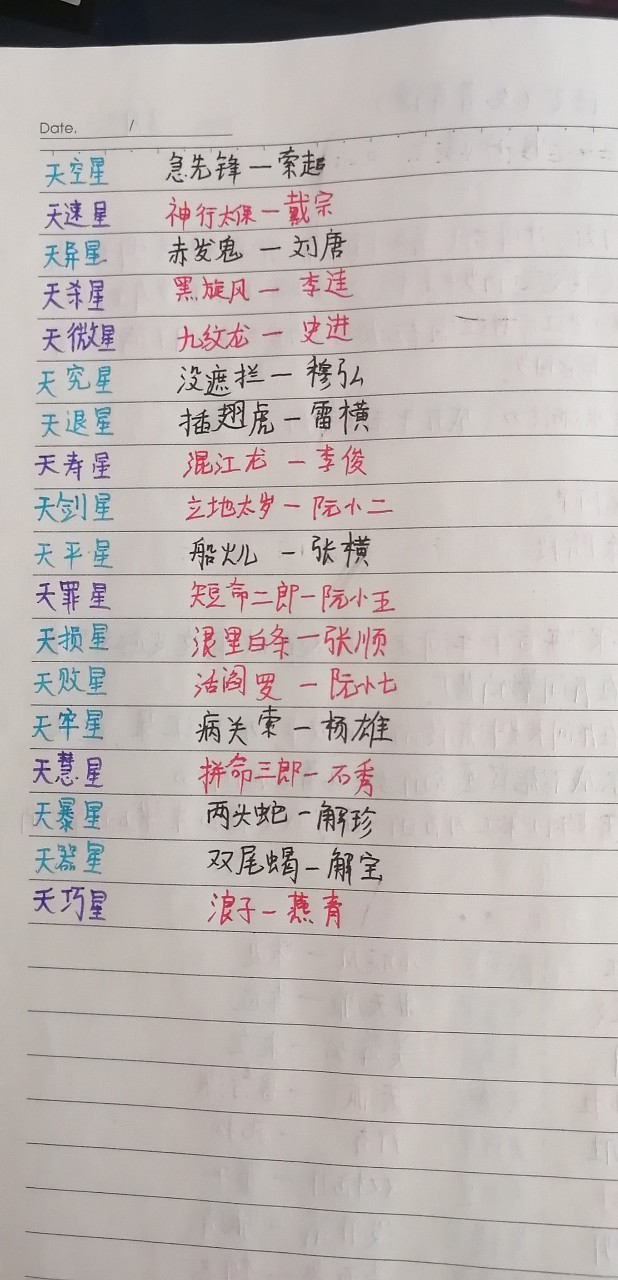 Date. /
天空星 急先锋—索超
天速星 神行太保—戴宗
天异星 赤发鬼—刘唐
天杀星 黑旋风—李逵
天微星 九纹龙—史进
天究星 没遮拦—穆弘
天退星 插翅虎—雷横
天寿星 混江龙—李俊
天剑星 立地太岁—阮小二
天平星 船火儿—张横
天罪星 短命二郎—阮小五
天损星 浪里白条—张顺
天败星 活阎罗—阮小七
天牢星 病关索—杨雄
天慧星 拼命三郎—石秀
天暴星 两头蛇—解珍
天哭星 双尾蝎—解宝
天巧星 浪子—燕青